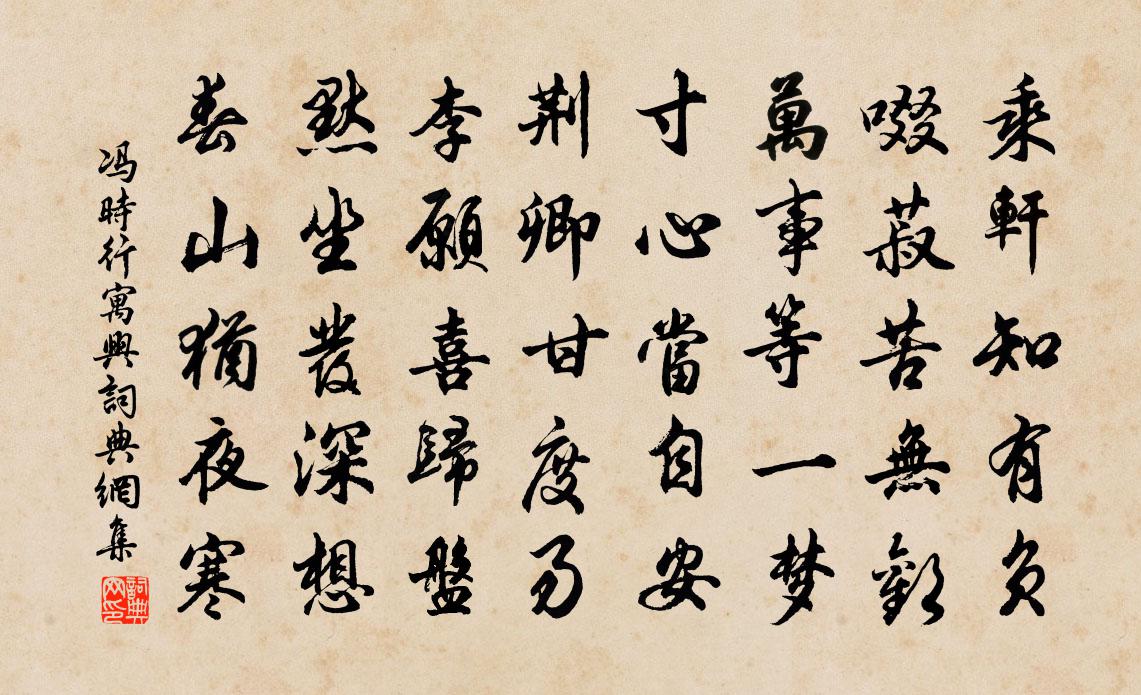 乘軒知有负
啜菽苦無歡
萬事等一梦
寸心當自安
荆卿甘度易
李願喜歸盤
默坐發深想
春山猶夜寒
冯時行寓興詞典網集
詞典网印